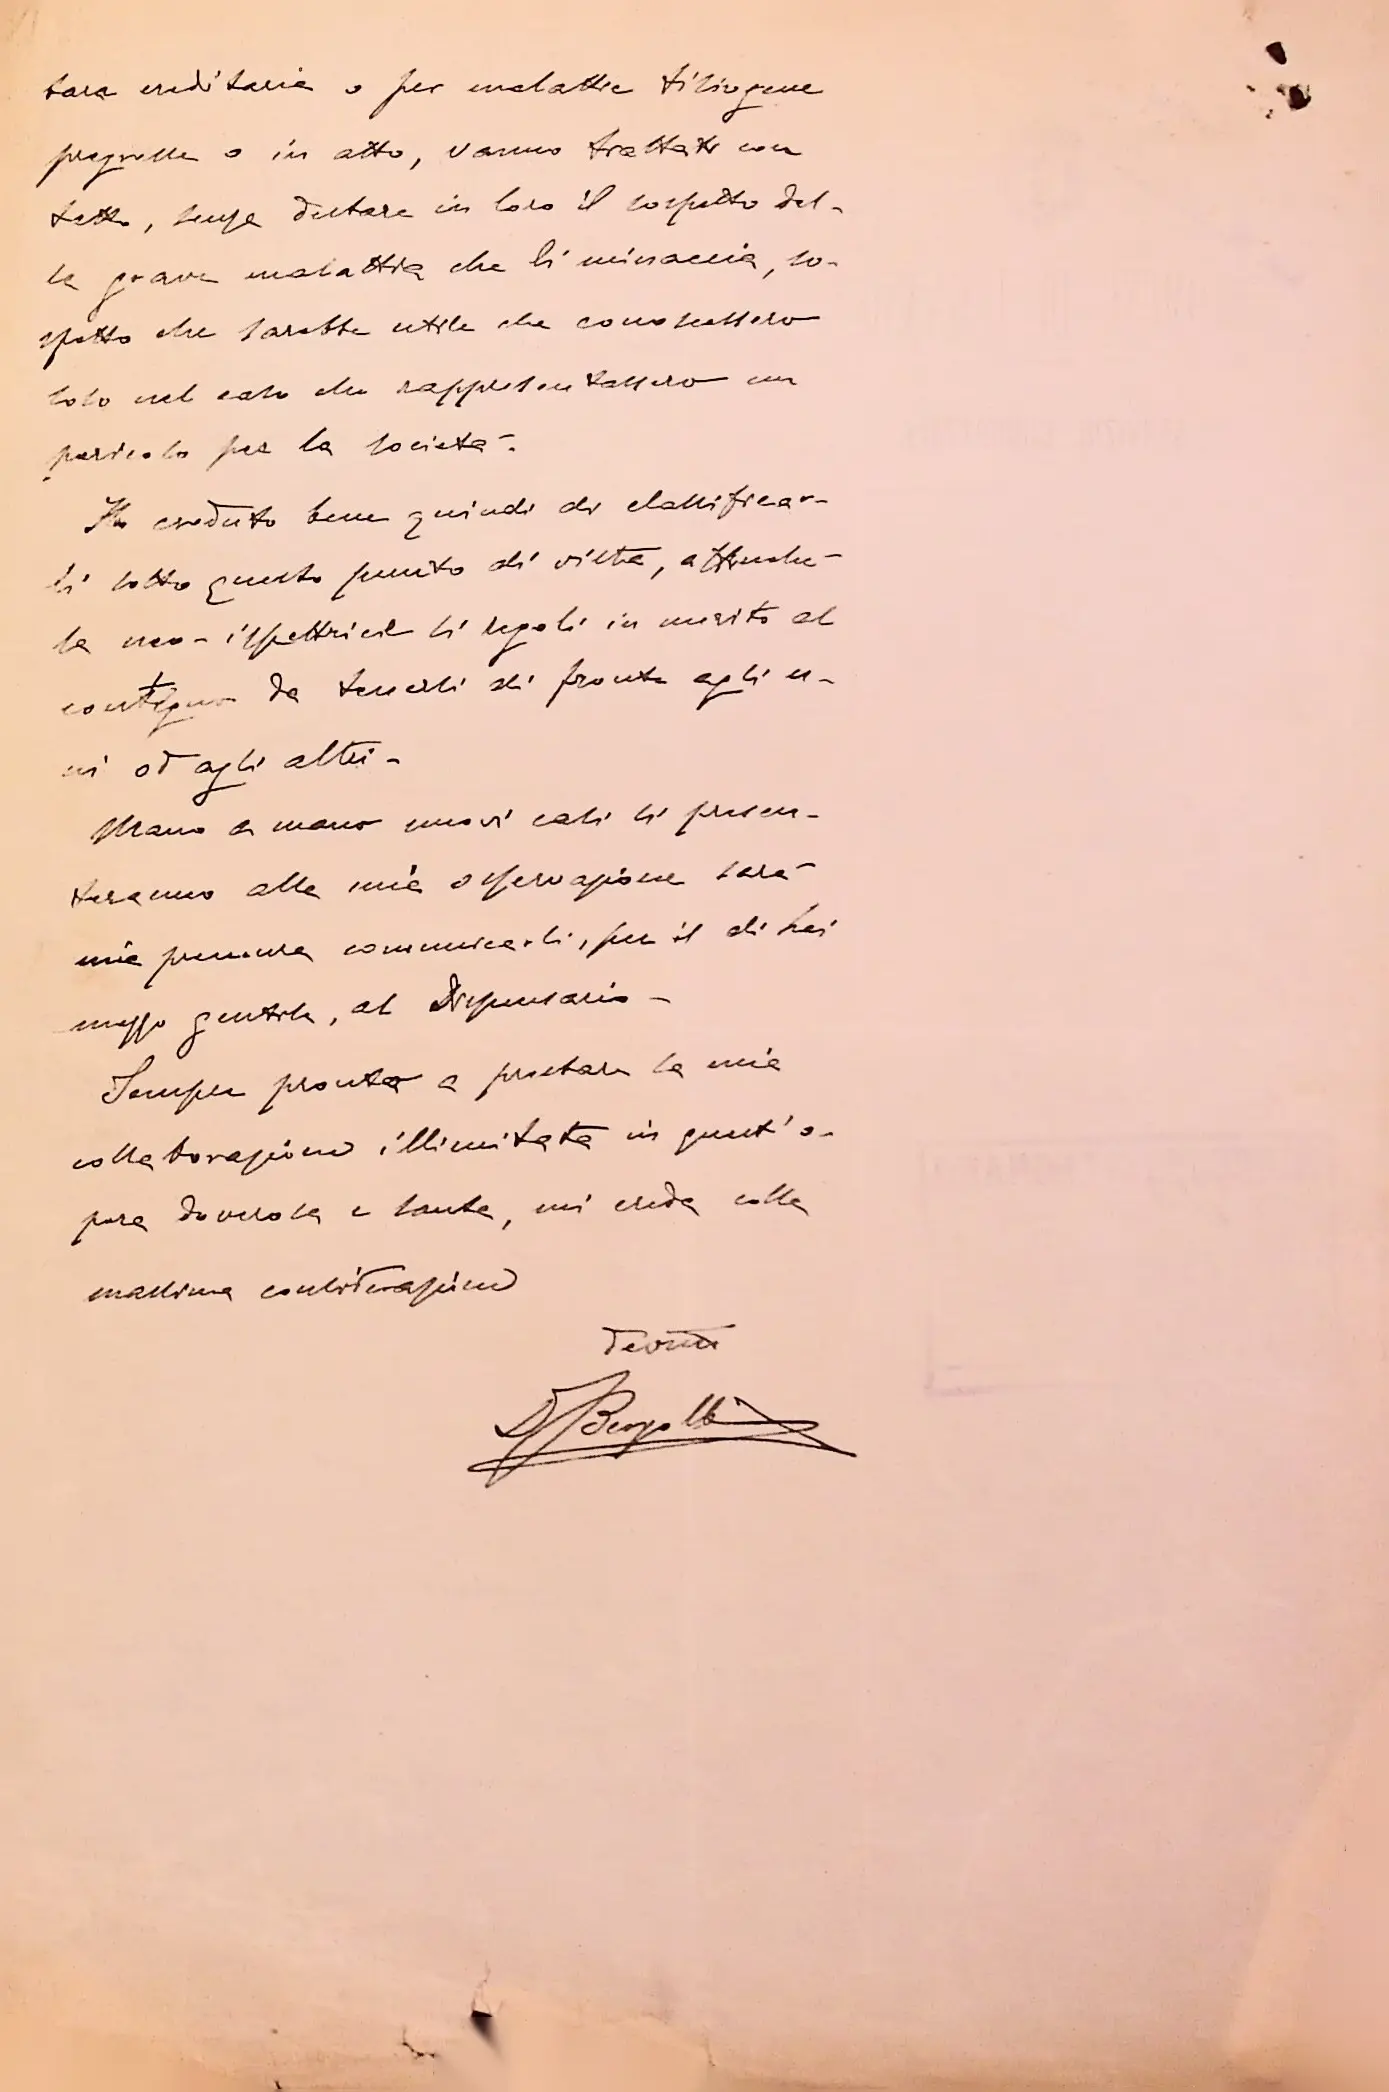 tara ereditaria o per malattie tisiogene
pregresse o in atto, vanno trattati con
tatto, senza destare in loro il sospetto del-
la grave malattia che li minaccia, so-
spetto che sarebbe utile che conoscessero
solo nel caso che rappresentassero un
pericolo per la società.
Ho creduto bene quindi di classificar-
li sotto questo punto di vista, affinche-
la neo-ispettrice si regoli in merito al
contegno da tenersi di fronte agli u-
ni od agli altri -
Mano a mano nuovi casi si presen-
teranno alla mia osservazione sarà
mia premura comunicarli, per il di Lei
mezzo gentile, al Dispensario -
Sempre pronto a prestare la mia
collaborazione illimitata in quest'o-
pera doverosa e santa, mi creda colla
massima considerazione
devmo